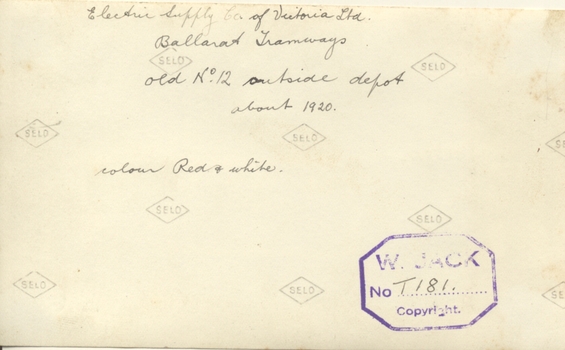 Electric Supply Co. of Victoria Ltd.
Ballarat Tramways
SELO SELO
old No. 12 outside depot
about 1920.
SELO SELO SELO
colour Red & white.
SELO SELO
W. JACK
No T181.
Copyright.
SELO SELO SELO